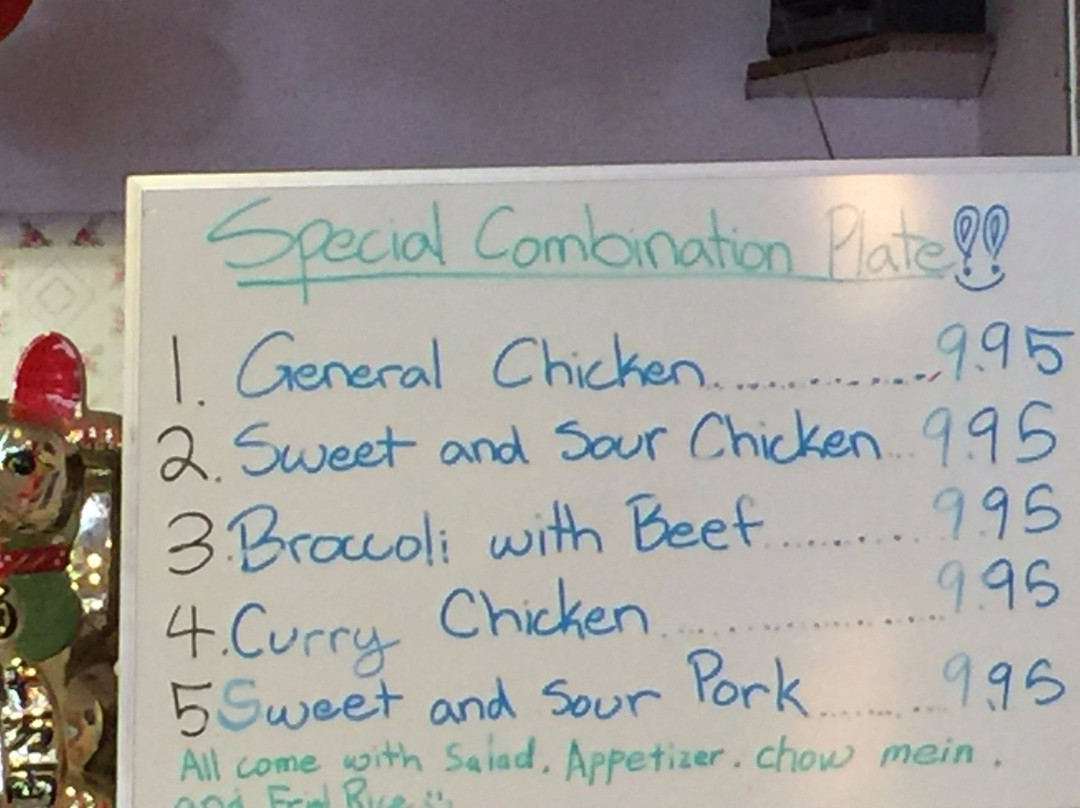 Special Combination Plate!!
1. General Chicken.............9.95
2. Sweet and Sour Chicken...9.95
3. Broccoli with Beef..........9.95
4. Curry Chicken..................9.95
5 Sweet and Sour Pork.........9.95
All come with Salad. Appetizer. chow mein.
and Fried Rice